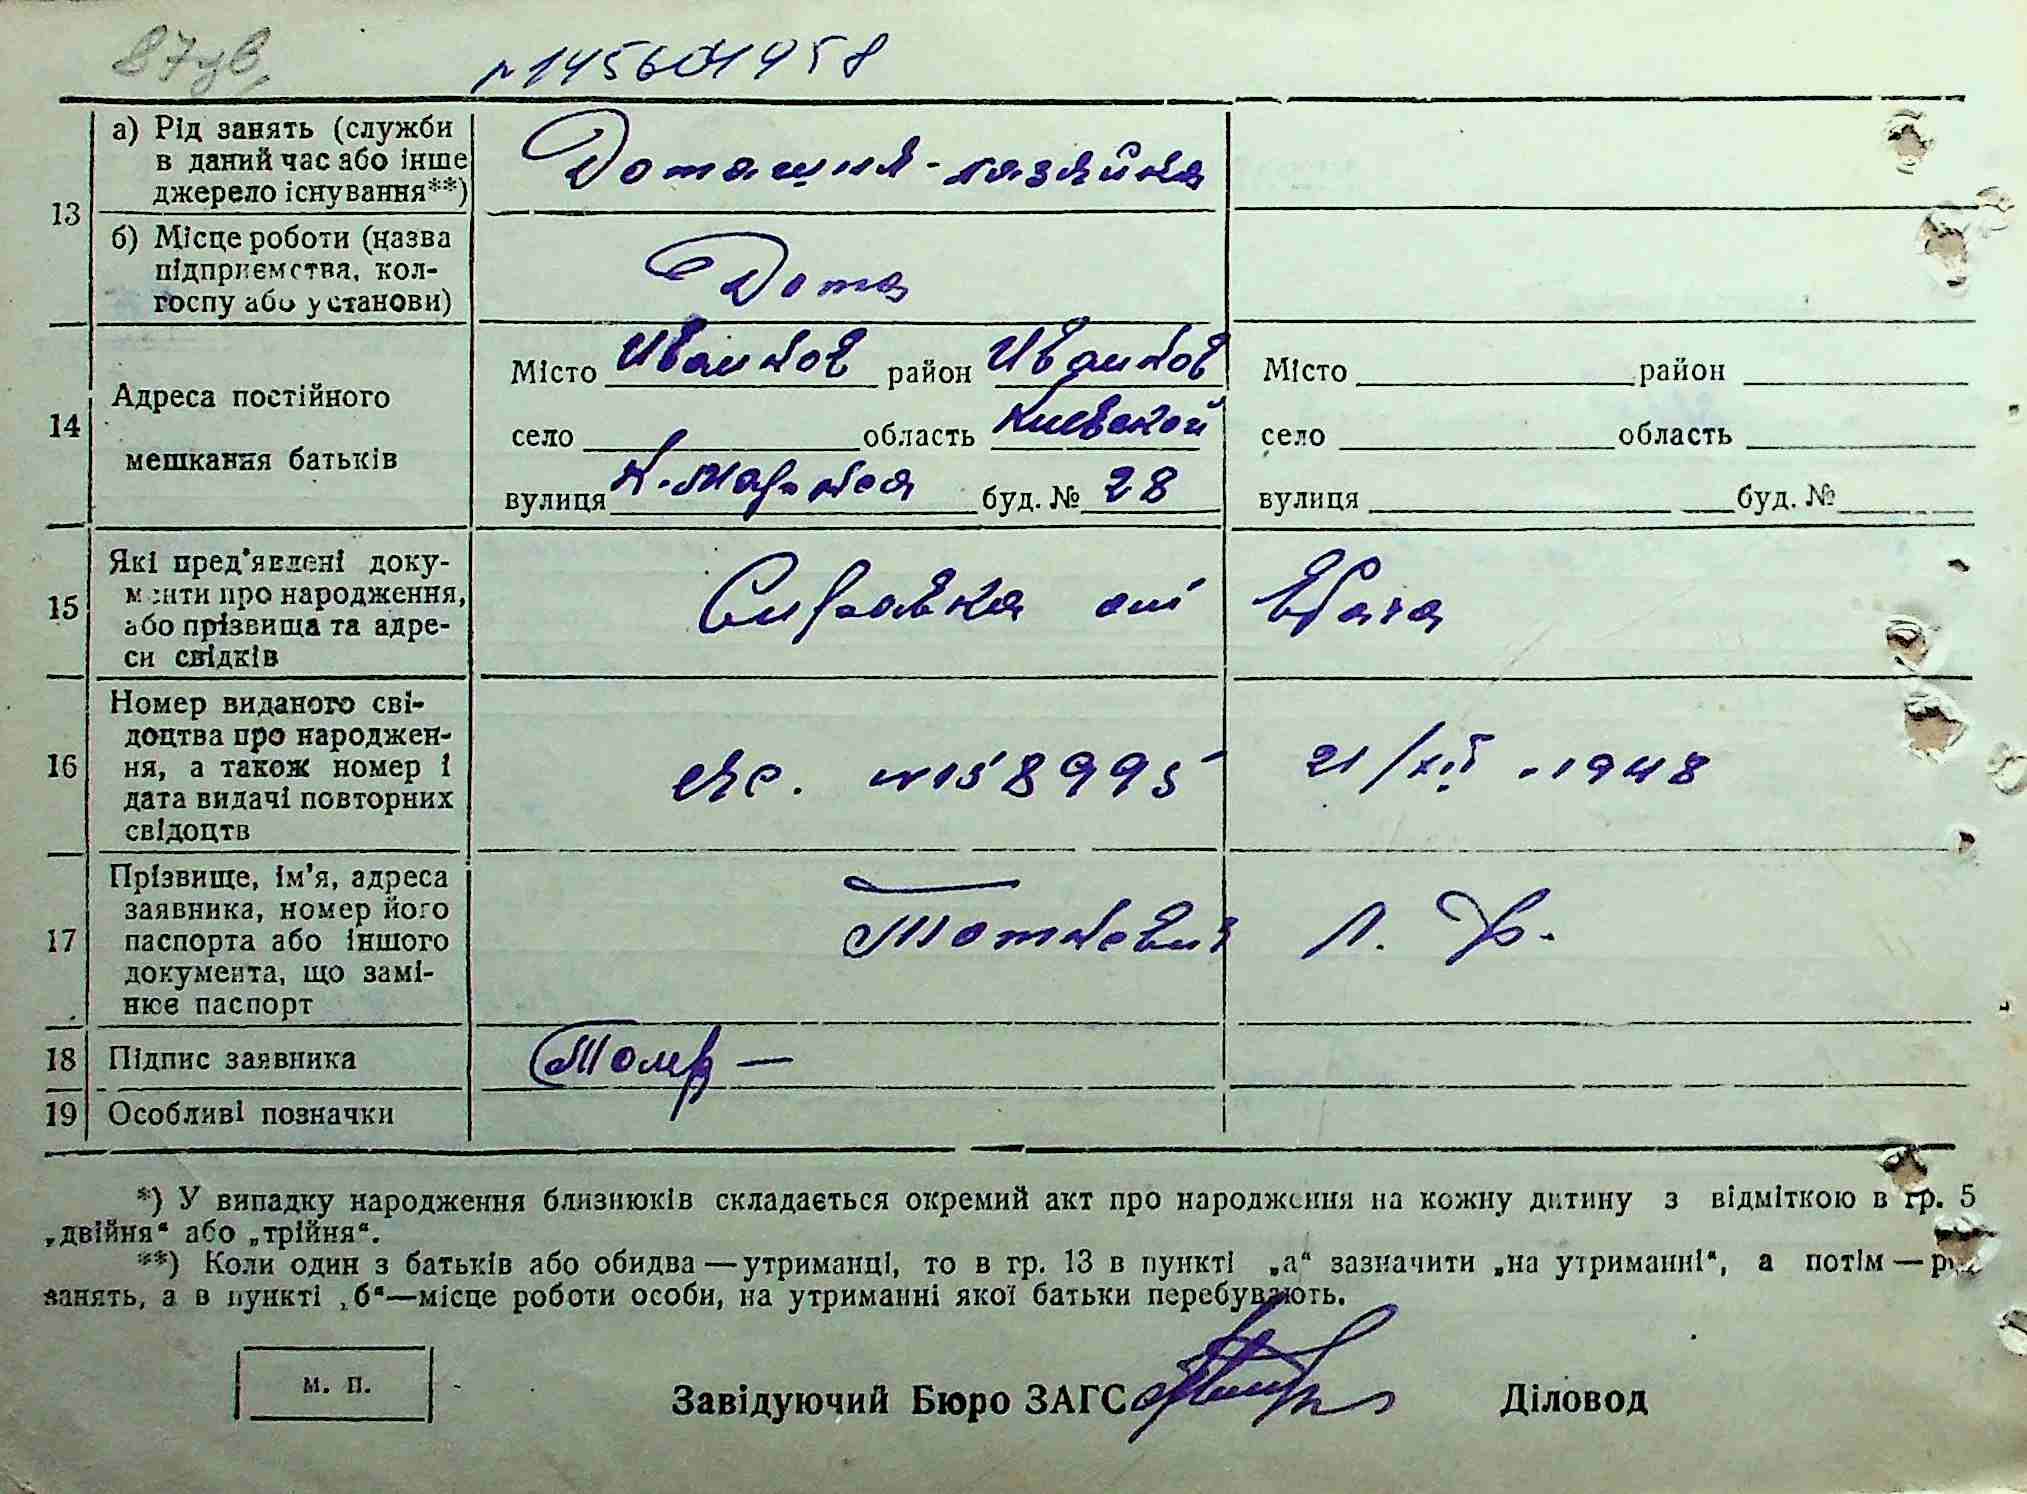 87
№ 145601958
13
а) Рід занять (служби
в даний час або інше
джерело існування**)
Домашня-хазяйка
б) Місце роботи (назва
підприємства, кол-
госпу або установи)
Дома
14
Адреса постійного
мешкання батьків
Місто Иванков район Иванков
село область Киевской
вулиця К.Маркса буд. № 28
Місто район
село область
вулиця буд. №
15
Які пред'явлені доку-
менти про народження,
або прізвища та адре-
си свідків
Справка от врача
16
Номер виданого сві-
доцтва про народжен-
ня, а також номер і
дата видачі повторних
свідоцтв
№158995 21/XII.1948
17
Прізвище, ім'я, адреса
заявника, номер його
паспорта або іншого
документа, що замі-
нює паспорт
Л.
18
Підпис заявника
19
Особливі позначки
*) У випадку народження близнюків складається окремий акт про народження на кожну дитину з відміткою в гр. 5
„двійня“ або „трійня“.
**) Коли один з батьків або обидва—утриманці, то в гр. 13 в пункті „а“ зазначити „на утриманні“, а потім—рід
занять, а в пункті „б“—місце роботи особи, на утриманні якої батьки перебувають.
м. п.
Завідуючий Бюро ЗАГС
Діловод